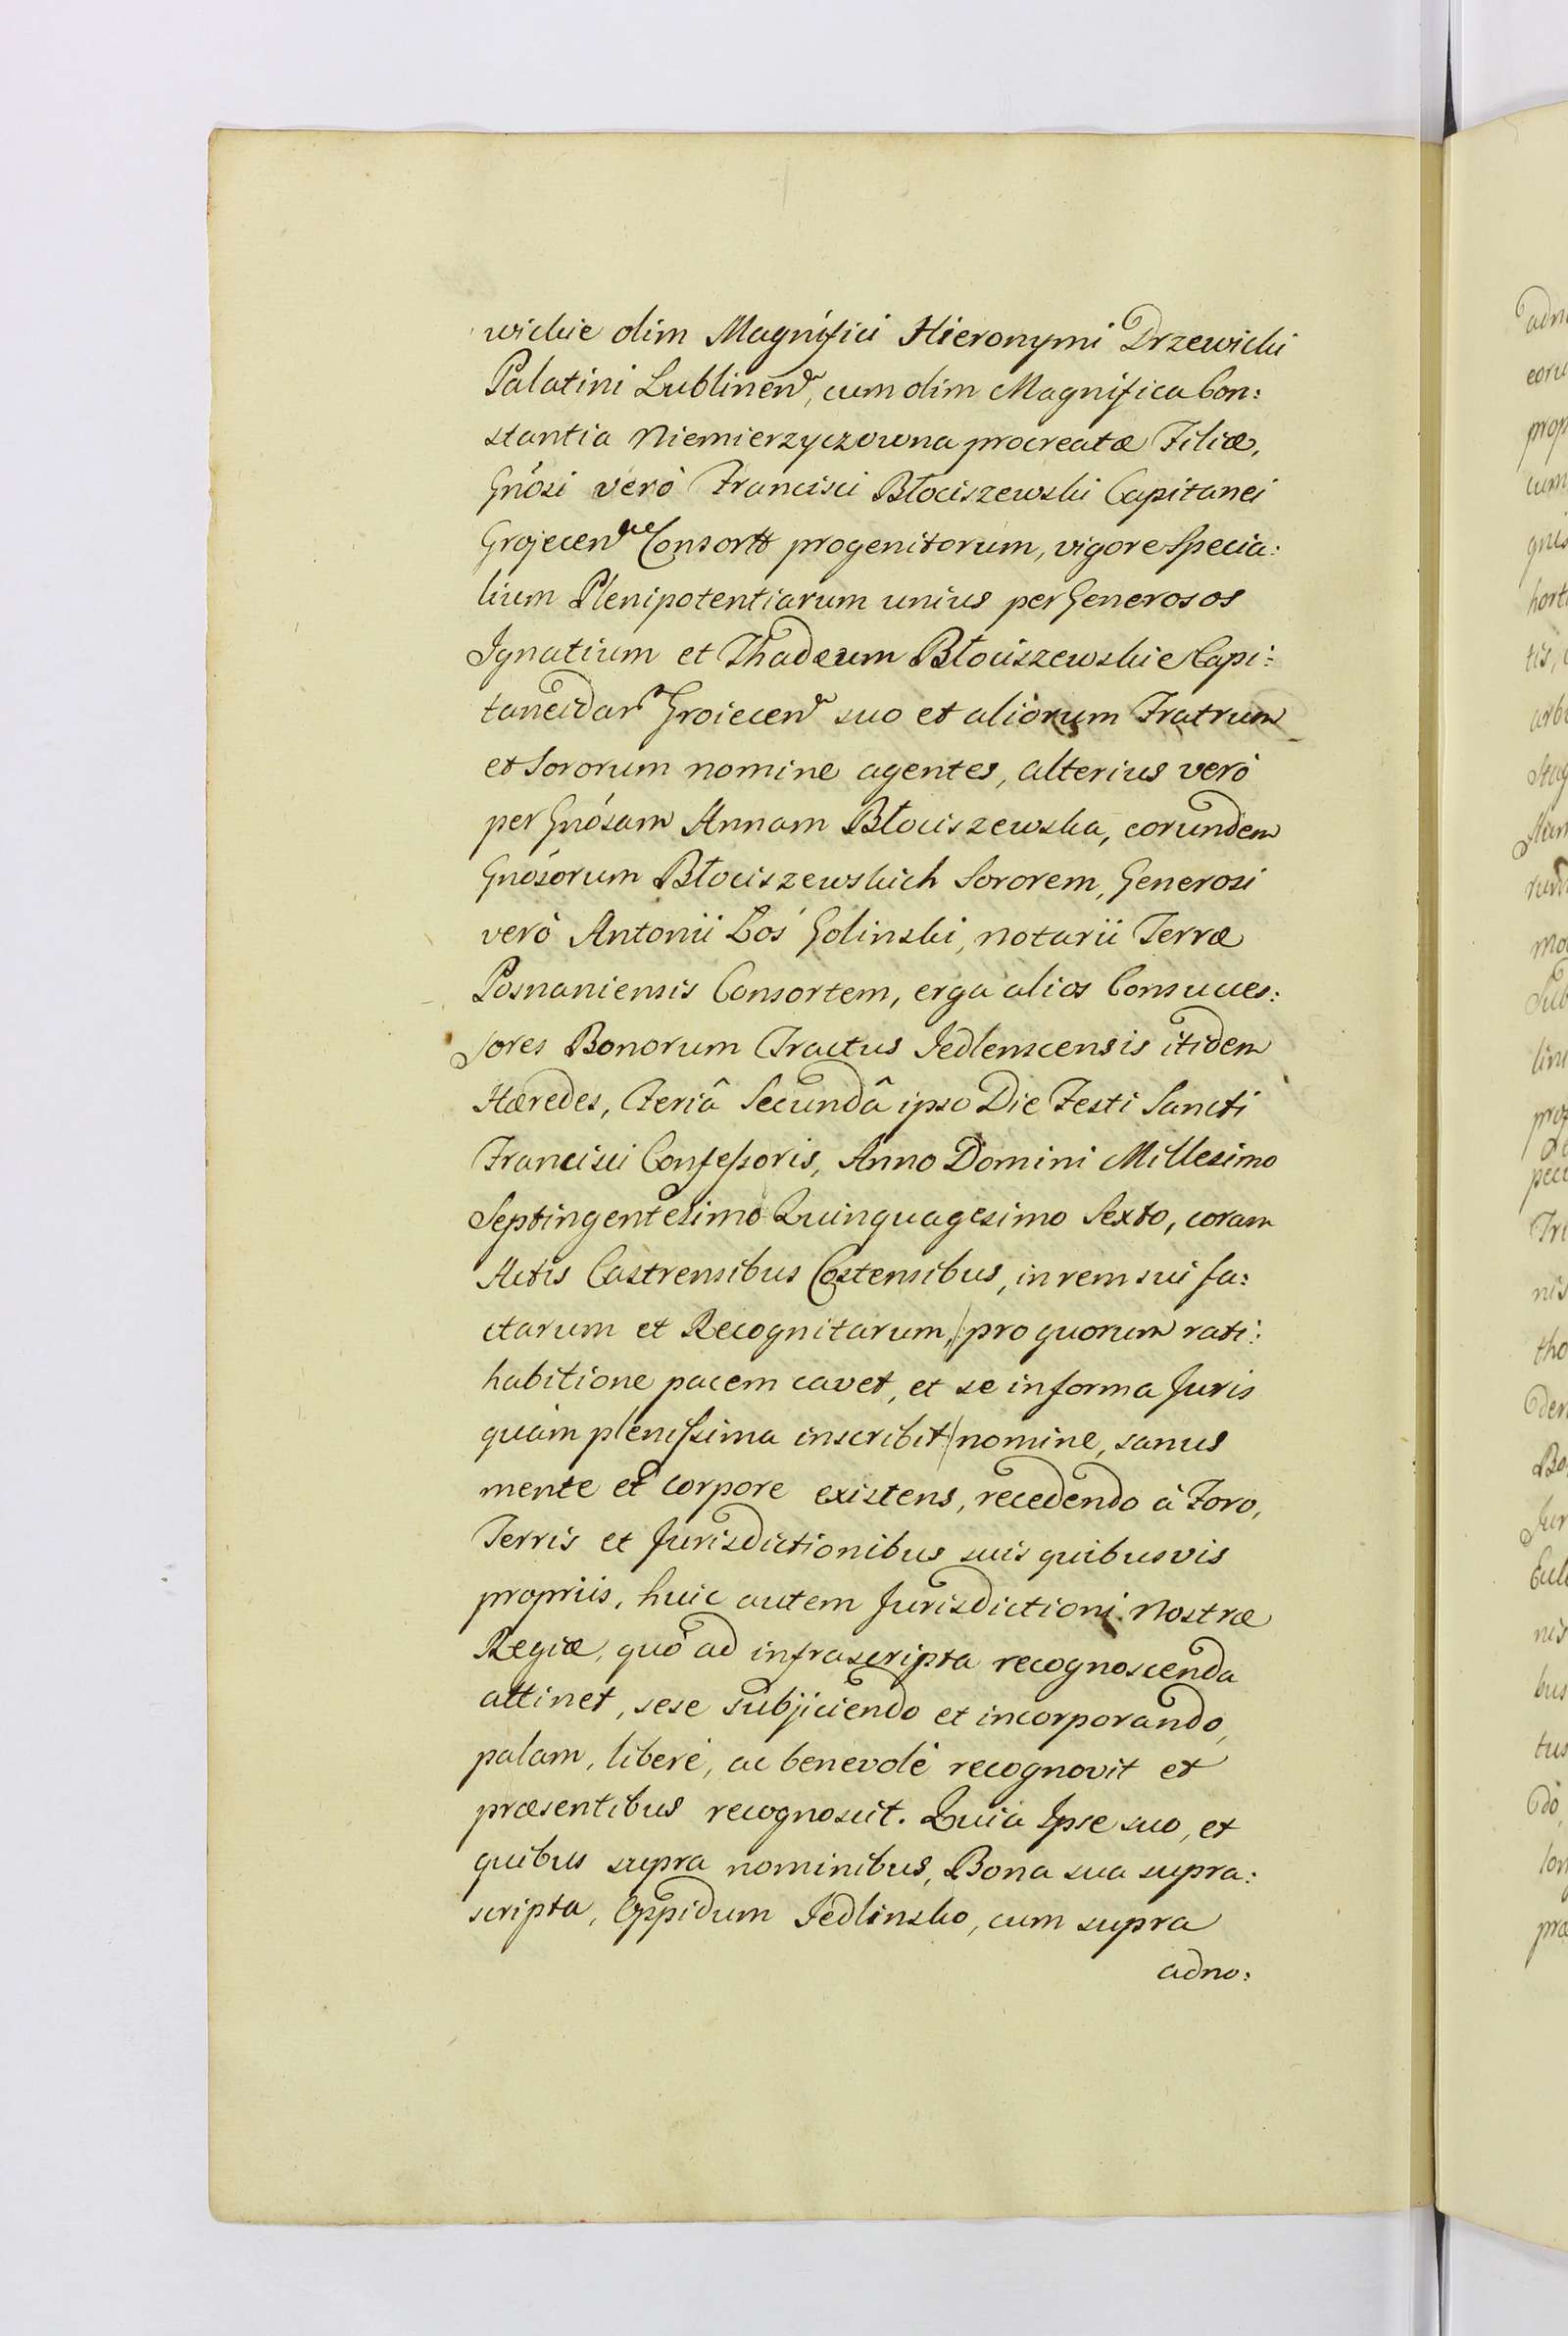 wickie olim Magnifici Hieronymi Drzewicki
Palatini Lublinen, cum olim Magnifica Con:
stantia Niemierzyczowna procreatæ Filiæ,
Gnósi verò Francisci Błociszewski Capitanei
Grojecen Consortt progenitorum, vigore Specia:
lium Plenipotentiarum unius per Generosos
Ignatium et Thadeum Błociszewskie Capi:
taneidar Groiecen suo et aliorum Fratrum
et Sororum nomine agentes, alterius verò
per Gnósam Annam Błociszewska, eorundem
Gnósorum Błociszewskich Sororem, Generosi
verò Antonii Łoś Golinski, notarii Terræ
Posnaniensis Consortem, erga alios Consucces:
sores Bonorum Tractus Jedlenscensis itidem
Hæredes, Feriâ Secundâ ipso Die Festi Sancti
Francisci Confessoris, Anno Domini Millesimo
Septingentesimo Quinquagesimo Sexto, coram
Actis Castrensibus Costensibus, in rem sui fa:
ctarum et Recognitarum, /pro quorum rati:
habitione pacem cavet, et se in forma Juris
quàm plenissima inscribit/ nomine, sanus
mente et corpore existens, recedendo à Foro,
Terris et Jurisdictionibus suis quibusvis
propriis, huic autem Jurisdictioni Nostræ
Regiæ, quò ad infrascripta recognoscenda
attinet, sese subjiciendo et incorporando,
palam, liberè, ac benevolè recognovit et
præsentibus recognoscit. Quia Ipse suo, et
quibus supra nominibus, Bona sua supra:
scripta, Oppidum Jedlinsko, cum supra
adno: